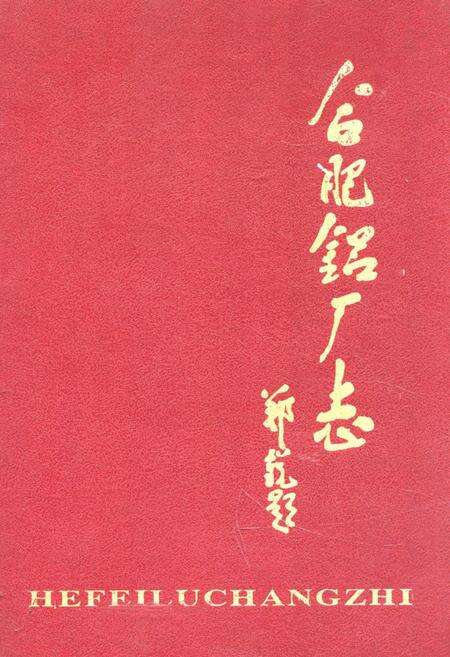 合肥鋁厂志
郑锐题
HEFEILUCHANGZHI